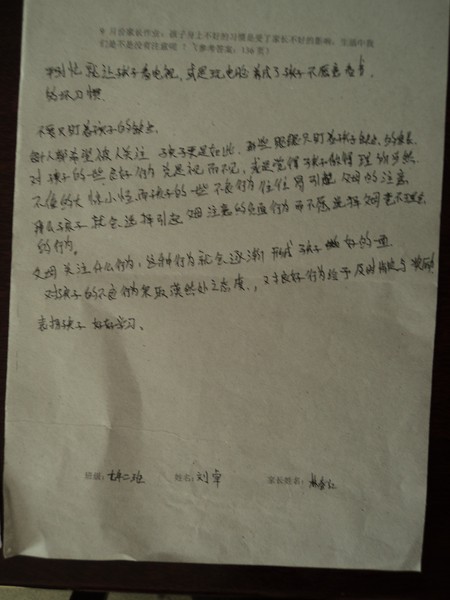 9 月份家长作业：孩子身上不好的习惯是受了家长不好的影响，生活中我
们是不是没有注意呢？（参考答案：136页）
平时忙就让孩子看电视，或是玩电脑养成了孩子不愿意看书
的坏习惯.
不要只盯着孩子的缺点.
每个人都希望被人关注 孩子更是在此. 那些眼睛只盯着孩子缺点的家长
对孩子的一些良好行为总是视而不见，或是觉得孩子的懂理所当然
不值的大惊小怪，而孩子的一些不良行为往往易引起父母的注意
那么孩子就会选择引起父母注意的负面行为而不愿选择父母
的行为。
父母关注什么行为，这种行为就会逐渐形成孩子做好的
对孩子的不良行为采取漠然处之态度，对良好行为给予及时 与奖励
支持孩子好好学习。
班级：七年二班 姓名：刘卓 家长姓名：